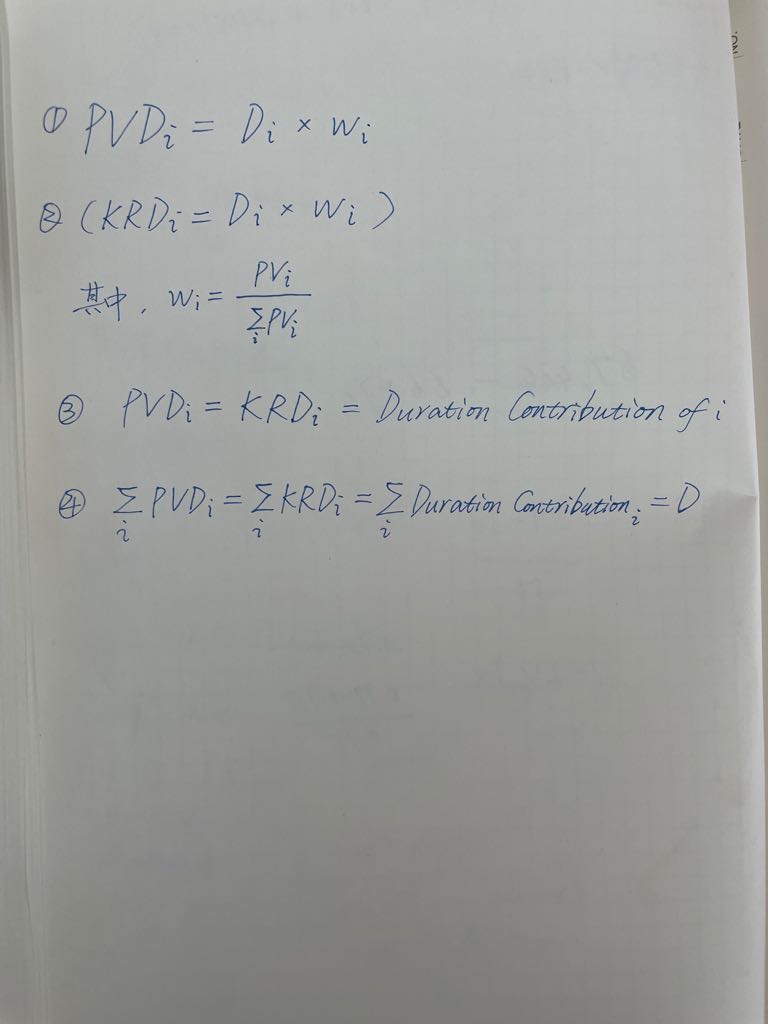 ① PVDᵢ = Dᵢ × wᵢ
② (KRDᵢ = Dᵢ × wᵢ)
其中, wᵢ = PVᵢ / ∑ᵢ PVᵢ
③ PVDᵢ = KRDᵢ = Duration Contribution of i
④ ∑ᵢ PVDᵢ = ∑ᵢ KRDᵢ = ∑ᵢ Duration Contributionᵢ = D